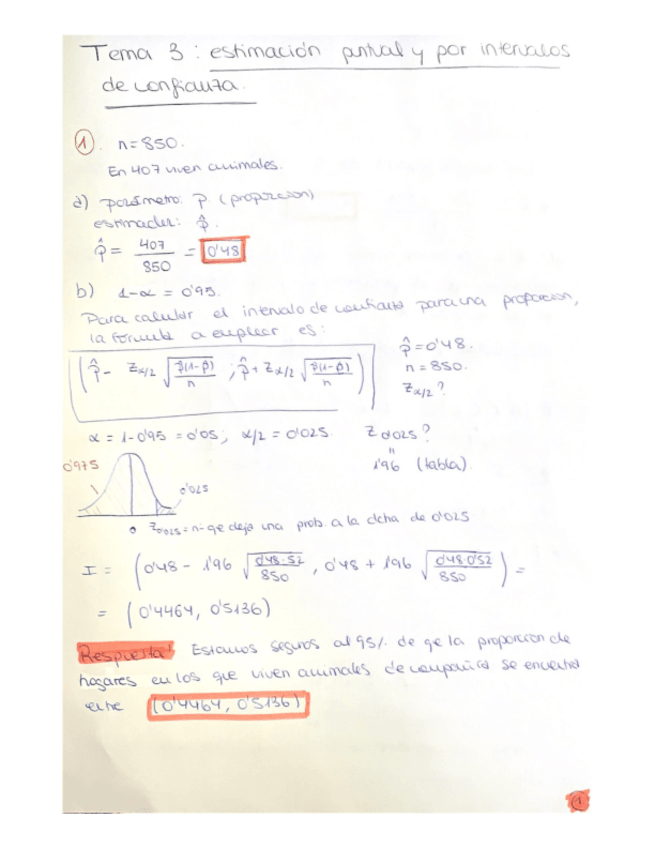 Tema 3 : estimación puntual y por intervalos
de confianza.
1. n=850.
En 407 viven animales.
a) parámetro: p (proporción)
estimador: p̂.
p̂ = 407/850 = 0'48
b) 1-α = 0'95.
Para calcular el intervalo de confianza para una proporción,
la fórmula a emplear es:
(p̂ - Zα/2 √(p̂(1-p̂)/n) ; p̂ + Zα/2 √(p̂(1-p̂)/n))
p̂=0'48.
n = 850.
Zα/2?
α = 1-0'95 = 0'05; α/2 = 0'025. Z0'025?
"
1'96 (tabla).
0'975
0'025
0 Z0'025 = nº qe deja una prob. a la dcha de 0'025
I = (0'48 - 1'96 √(0'48·52/850) , 0'48 + 1'96 √(0'48·0'52/850)) =
= (0'4464, 0'5136)
Respuesta: Estamos seguros al 95% de qe la proporción de
hogares en los que viven animales de compañía se encuentra
entre (0'4464, 0'5136)
1